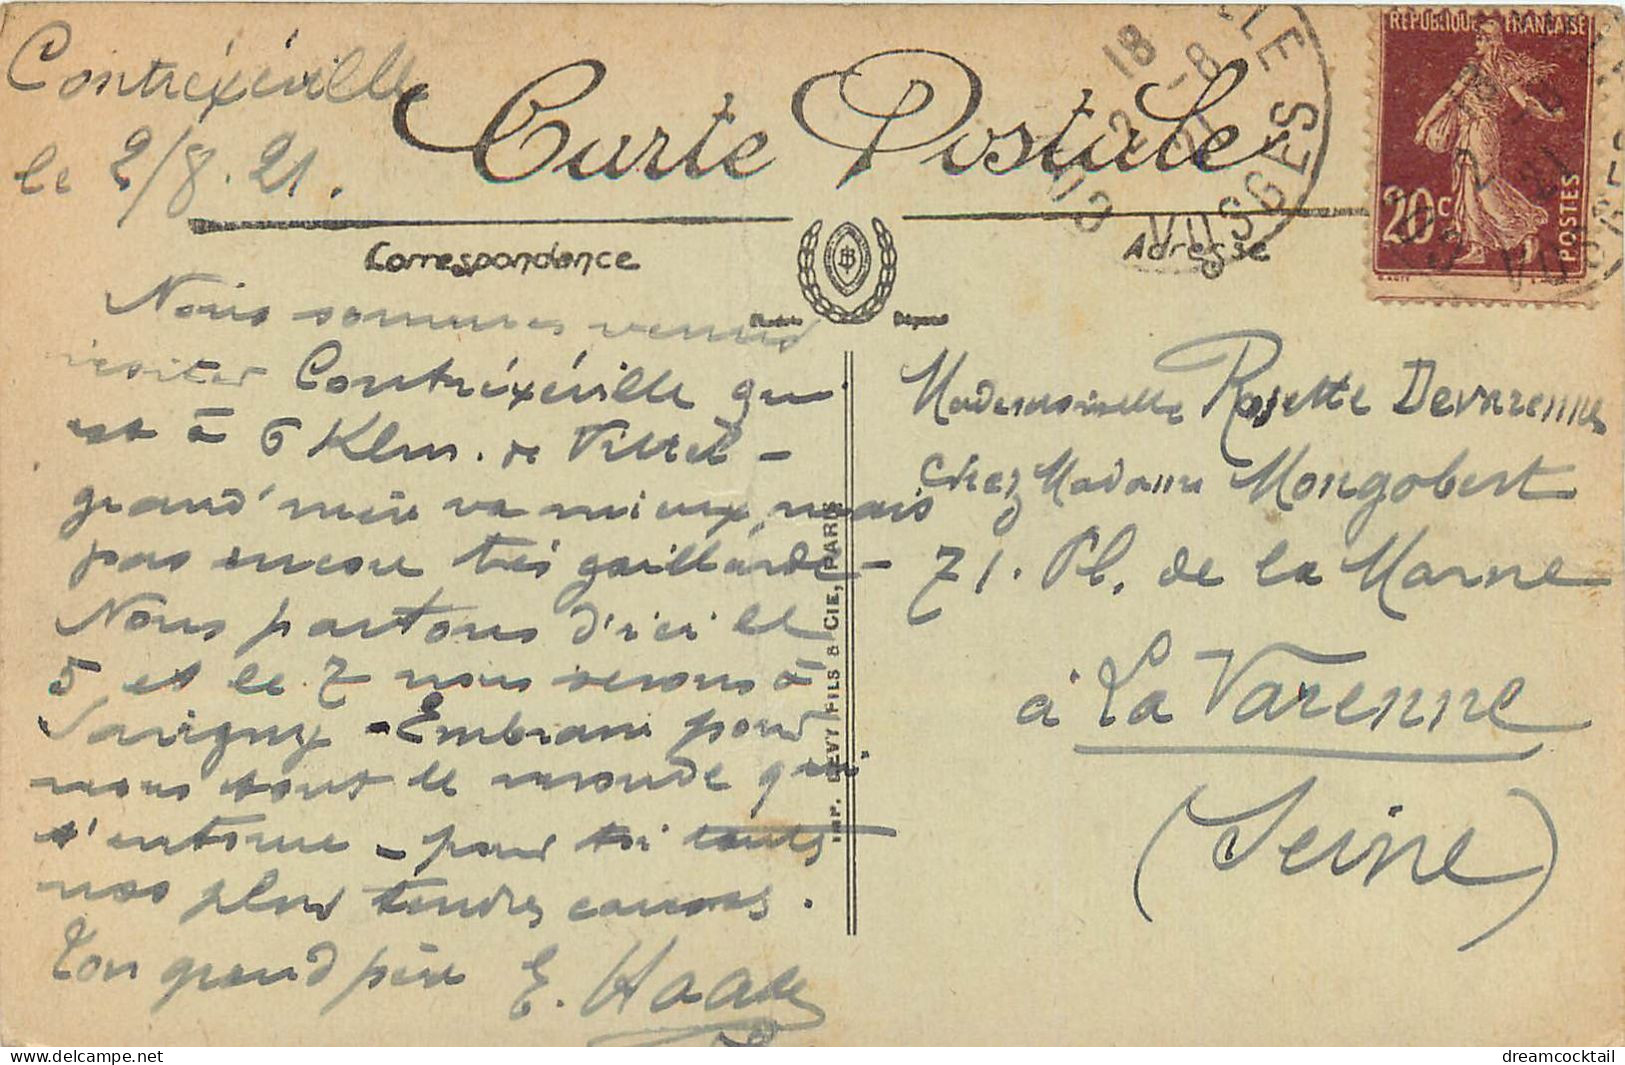 Contréxéville
le 2/8.21.
Carte Postale
Correspondance
Adresse
Modèle Déposé
RÉPUBLIQUE FRANÇAISE
20c
POSTES
18
2-8
21
VOSGES
Nous sommes venus
visiter Contréxéville qui
est à 6 Klm. de Vittel -
grand'mère va mieux, mais
pas encore très gaillarde -
Nous partons d'ici le
5 et le 7 nous serons à
Savigny - Embrasse pour
nous tout le monde qui
t'entoure - pour toi toutes
nos plus tendres caresses.
Ton grand père E. Haade
IMP. LÉVY FILS & CIE, PARIS
Mademoiselle Rosette Devarenne
chez Madame Mongobert
71. Pl. de la Marne
à La Varenne
(Seine)
dreamcocktail